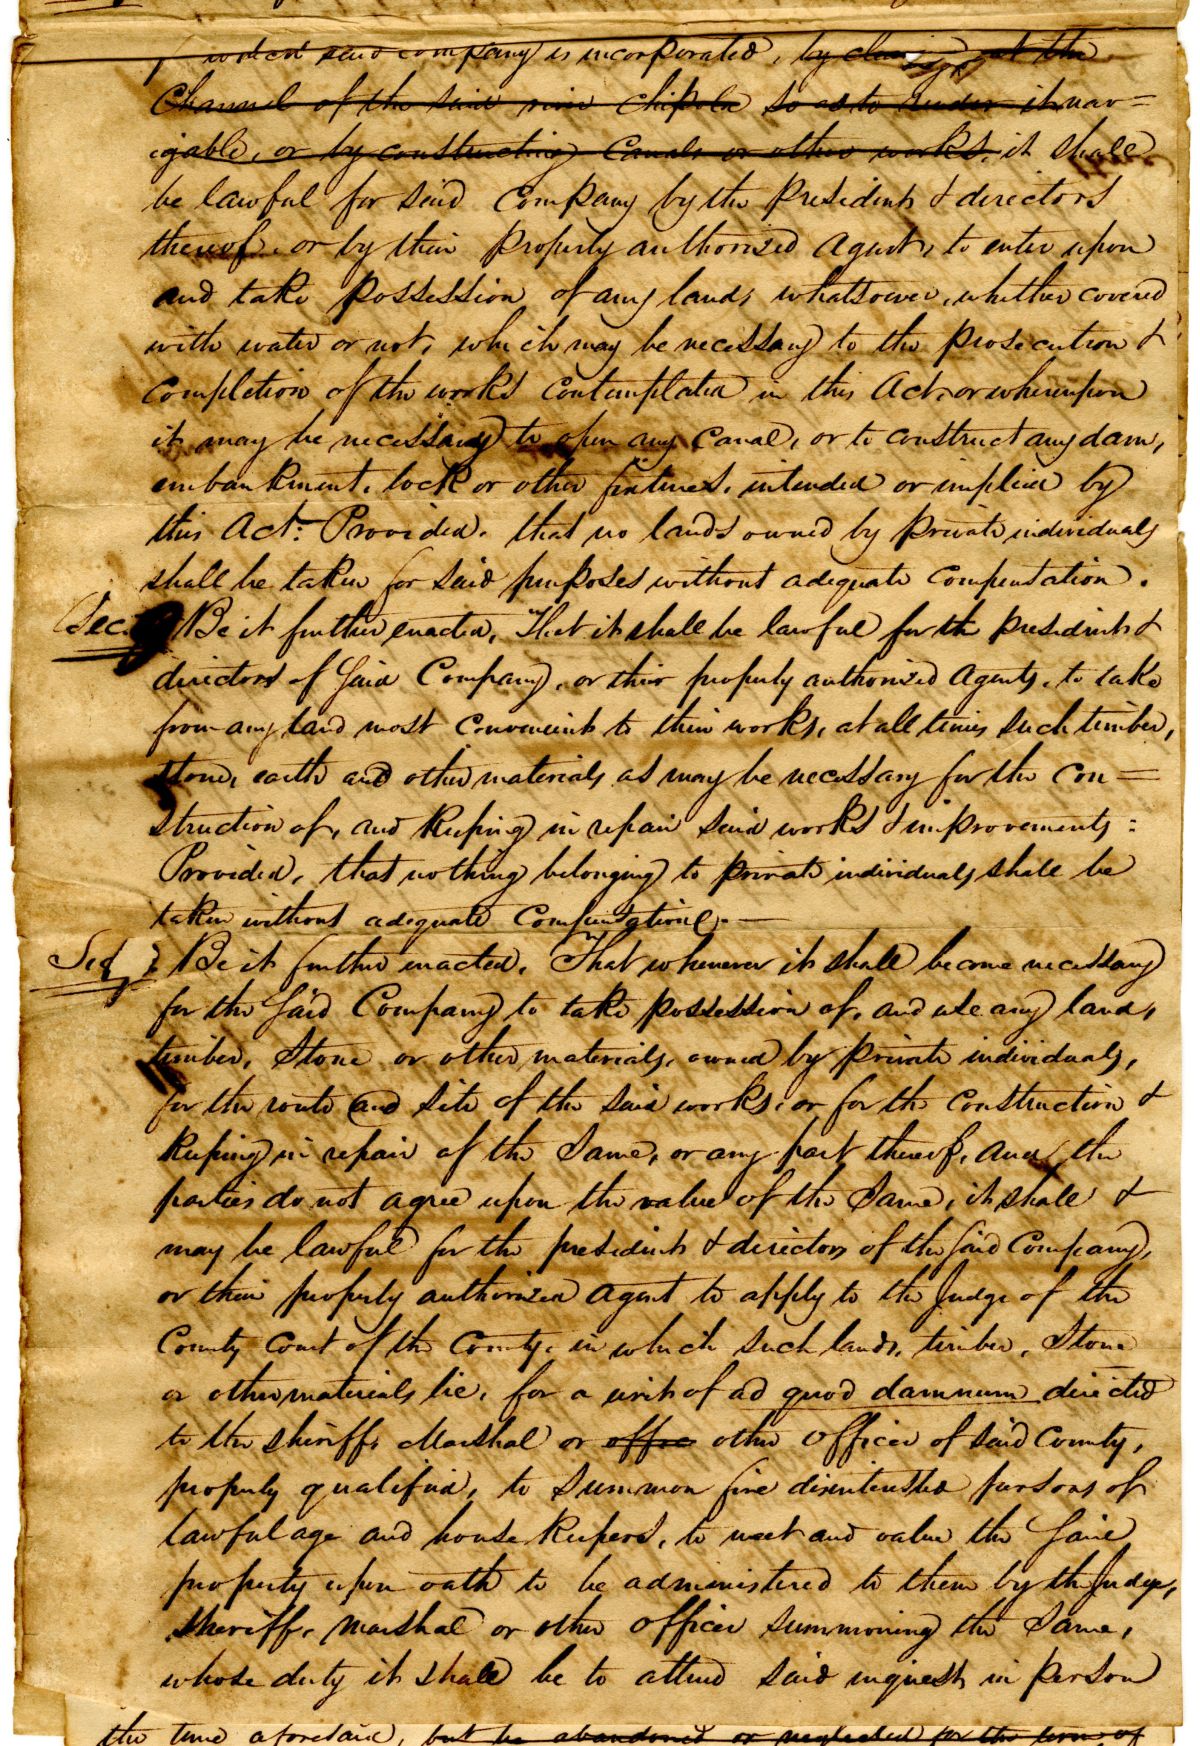 which said company is incorporated, by clearing out the
Channel of the said river Chipola so as to render it nav=
igable, or by constructing Canals or other works, it shall
be lawful for said Company by the President & directors
thereof, or by their properly authorised Agent, to enter upon
and take possession of any lands whatsoever, whether covered
with water or not, which may be necessary to the prosecution &
Completion of the works contemplated in this Act, or whereupon
it may be necessary to open any Canal, or to construct any dam,
embankment, lock or other fixtures, intended or implied by
this Act: Provided, that no lands owned by private individuals
shall be taken for said purposes without adequate compensation.
Sec. Be it further enacted, That it shall be lawful for the president &
directors of said Company, or their properly authorised Agents, to take
from any land most convenient to their works, at all times such timber,
stone, earth and other materials as may be necessary for the Con=
struction of, and keeping in repair said works & improvements:
Provided, that nothing belonging to private individuals shall be
taken without adequate Compensation.
Sec Be it further enacted, That whenever it shall become necessary
for the said Company to take possession of, and use any land,
timber, Stone or other materials, owned by private individuals,
for the route and site of the said works, or for the construction &
keeping in repair of the Same, or any part thereof, and the
parties do not agree upon the value of the Same, it shall &
may be lawful for the president & directors of the said Company,
or their properly authorised Agent to apply to the Judge of the
County Court of the County, in which such lands, timber, Stone
or other materials lie, for a writ of ad quod damnum directed
to the sheriff, Marshal or offce other Officer of said County,
properly qualified, to summon five disinterested persons of
lawful age and house keepers, to meet and value the said
property upon oath to be administered to them by the Judge,
sheriff, marshal or other Officer summoning the Same,
whose duty it shall be to attend said inquest in person
the time aforesaid, but be abandoned or neglected for the term of